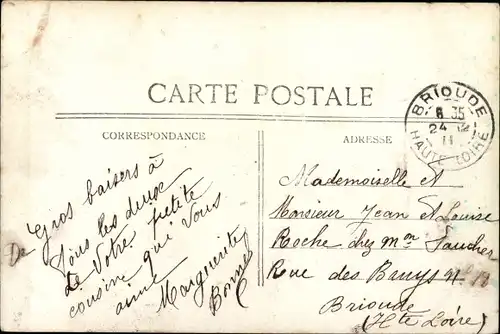 CARTE POSTALE
CORRESPONDANCE
De Gros baisers à
tous les deux
de Votre petite
cousine qui vous
aime
Marguerite
ADRESSE
Mademoiselle et
Monsieur Jean et Louise
Roche chez Mon
Rue des
Brioude
(Hte Loire)
BRIOUDE
24
11
HAUTE LOIRE